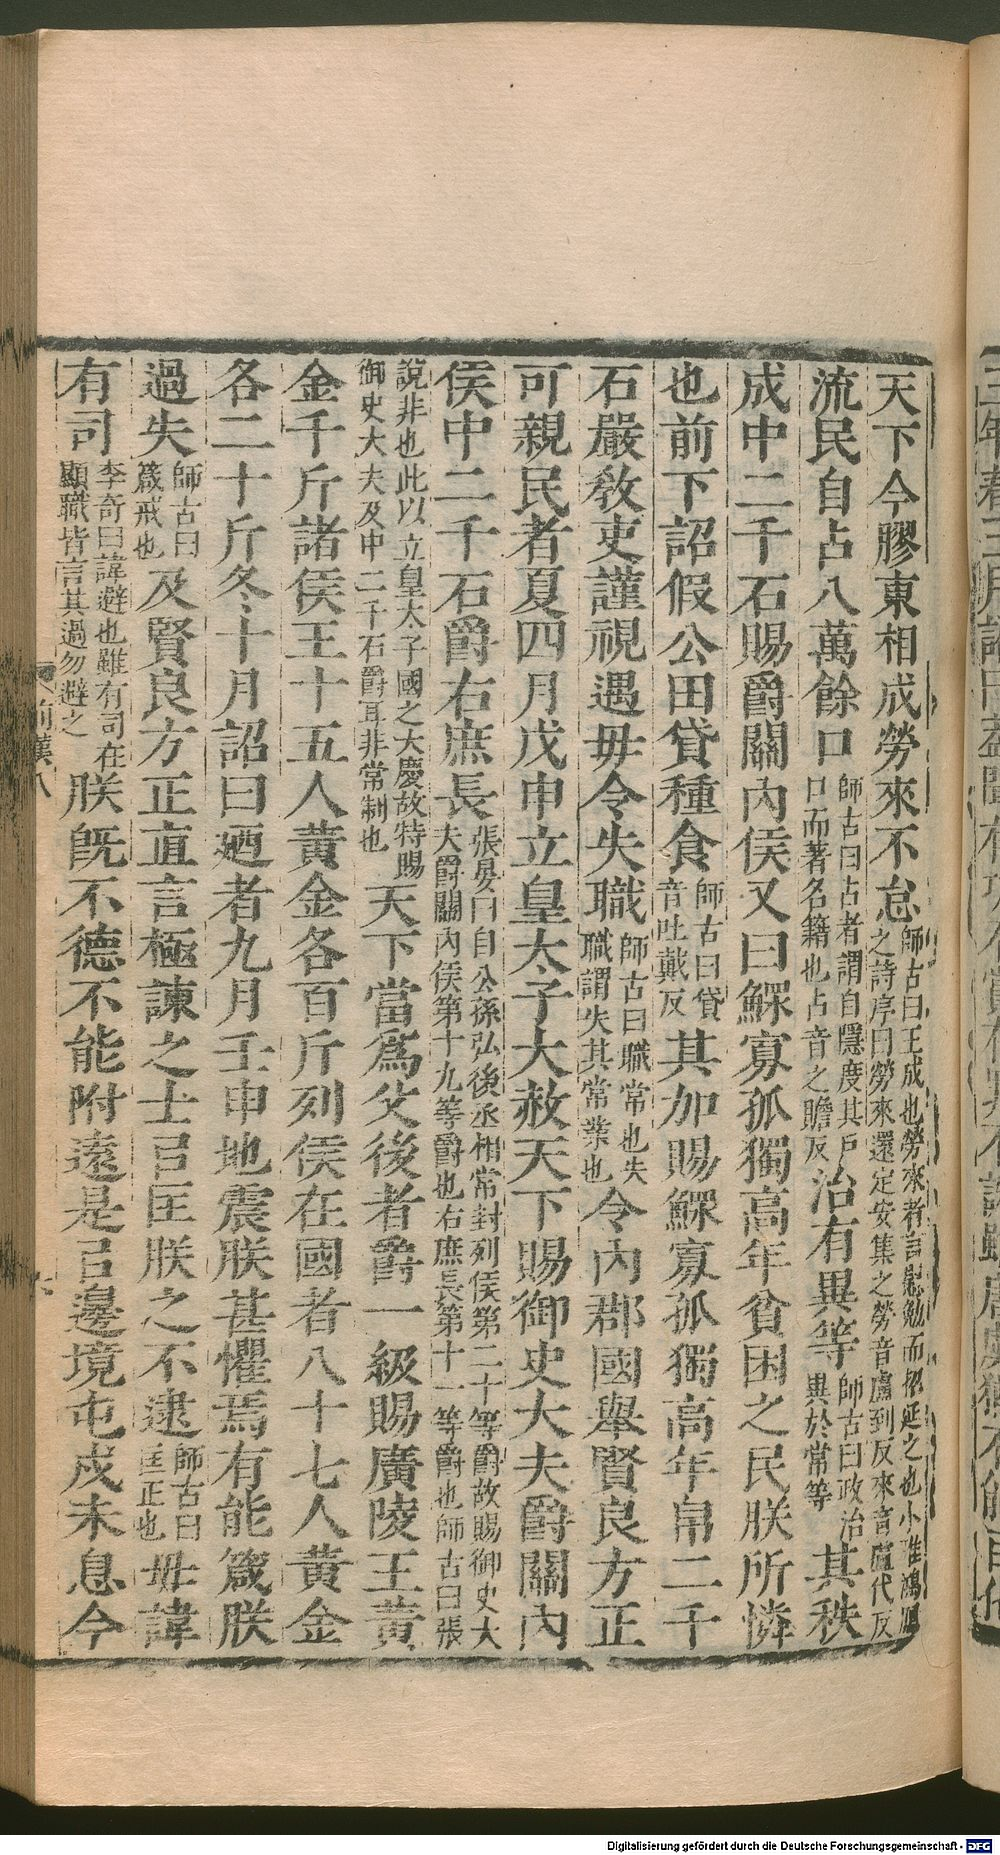 天下今膠東相成勞來不怠師古曰王成也勞來者言慰勉而招延之也小雅鴻鴈之詩序曰勞來還定安集之勞音盧到反來音盧代反
流民自占八萬餘口師古曰占者謂自隱度其戶口而著名籍也占音之贍反治有異等師古曰政治異於常等其秩
成中二千石賜爵關內侯又曰鰥寡孤獨高年貧困之民朕所憐
也前下詔假公田貸種食師古曰貸音吐戴反其加賜鰥寡孤獨高年帛二千
石嚴教吏謹視遇毋令失職師古曰職常也失職謂失其常業也令內郡國舉賢良方正
可親民者夏四月戊申立皇太子大赦天下賜御史大夫爵關內
侯中二千石爵右庶長張晏曰自公孫弘後丞相常封列侯第二十等爵故賜御史大夫爵關內侯第十九等爵也右庶長第十一等爵也師古曰張
說非也此以立皇太子國之大慶故特賜御史大夫及中二千石爵耳非常制也天下當爲父後者爵一級賜廣陵王黃
金千斤諸侯王十五人黃金各百斤列侯在國者八十七人黃金
各二十斤冬十月詔曰廼者九月壬申地震朕甚懼焉有能箴朕
過失師古曰箴戒也及賢良方正直言極諫之士㠯匡朕之不逮師古曰匡正也毋諱
有司李奇曰諱避也雖有司在顯職皆言其過勿避之朕旣不德不能附遠是㠯邊境屯戍未息今
前漢八
Digitalisierung gefördert durch die Deutsche Forschungsgemeinschaft - DFG